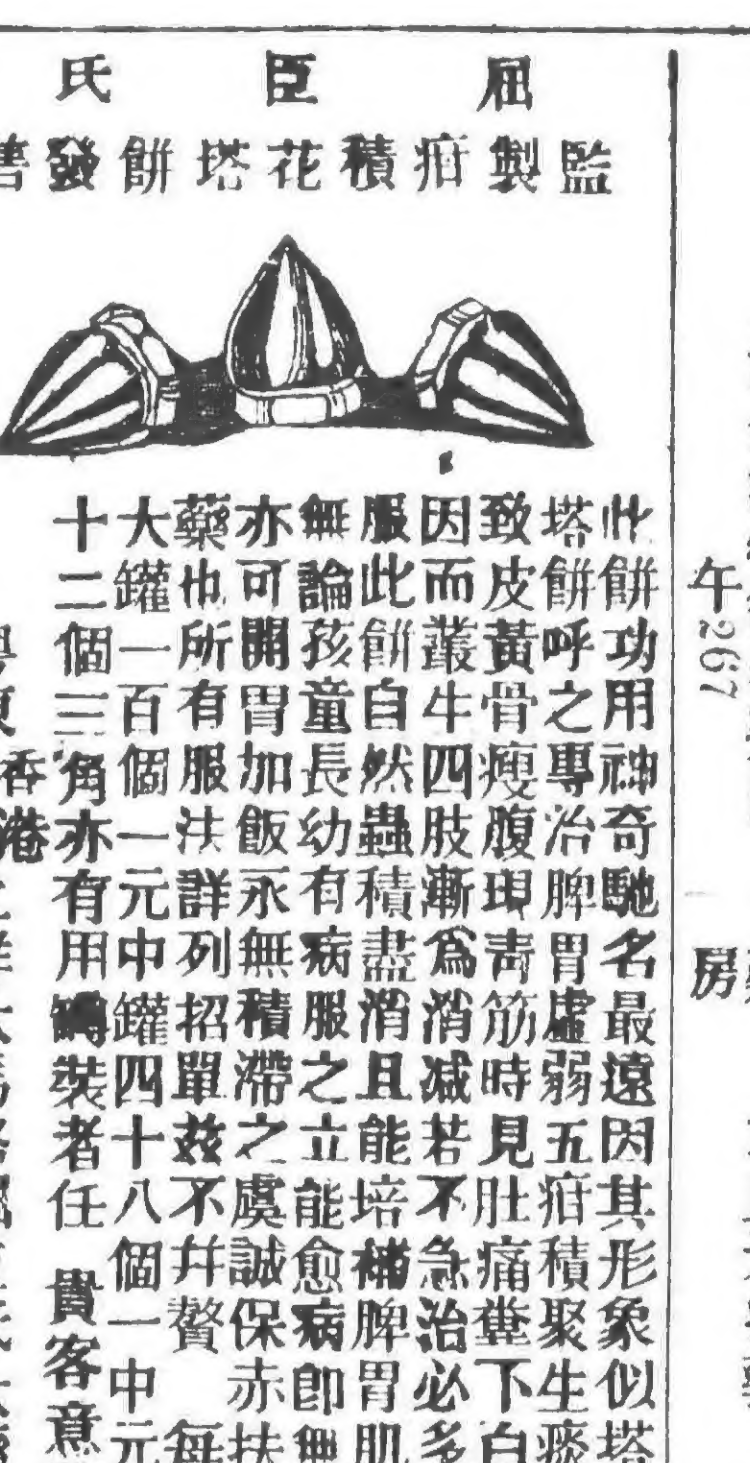 屈臣氏
監製疳積花塔餅發
此餅功用神奇馳名最遠因其形象似塔
塔餅呼之專治脾胃虛弱五疳積聚生痰
致皮黃骨瘦腹現靑筋時見肚痛糞下白
因而叢生四肢漸爲消减若不急治必多
服此餅自然蟲積盡消且能培補脾胃肌
無論孩童長幼有病服之立能愈病卽無
亦可開胃加飯永無積滯之虞誠保赤扶
藥也所有服法詳列招單茲不幷贅 每
大罐一百個一元中罐四十八個一中元
十二個三角亦有用罇裝者任 貴客意
香港
午267
房